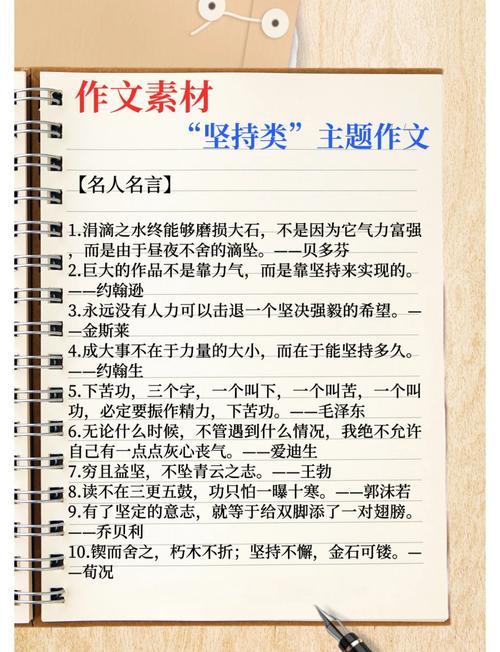 作文素材
“坚持类”主题作文
【名人名言】
1.涓滴之水终能够磨损大石，不是因为它气力富强
，而是由于昼夜不舍的滴坠。——贝多芬
2.巨大的作品不是靠力气，而是靠坚持来实现的。
——约翰逊
3.永远没有人力可以击退一个坚决强毅的希望。—
—金斯莱
4.成大事不在于力量的大小，而在于能坚持多久。
——约翰生
5.下苦功，三个字，一个叫下，一个叫苦，一个叫
功，必定要振作精力，下苦功。——毛泽东
6.无论什么时候，不管遇到什么情况，我绝不允许
自己有一点点灰心丧气。——爱迪生
7.穷且益坚，不坠青云之志。——王勃
8.读不在三更五鼓，功只怕一曝十寒。——郭沫若
9.有了坚定的意志，就等于给双脚添了一对翅膀。
——乔贝利
10.锲而舍之，朽木不折；坚持不懈，金石可镂。—
—荀况